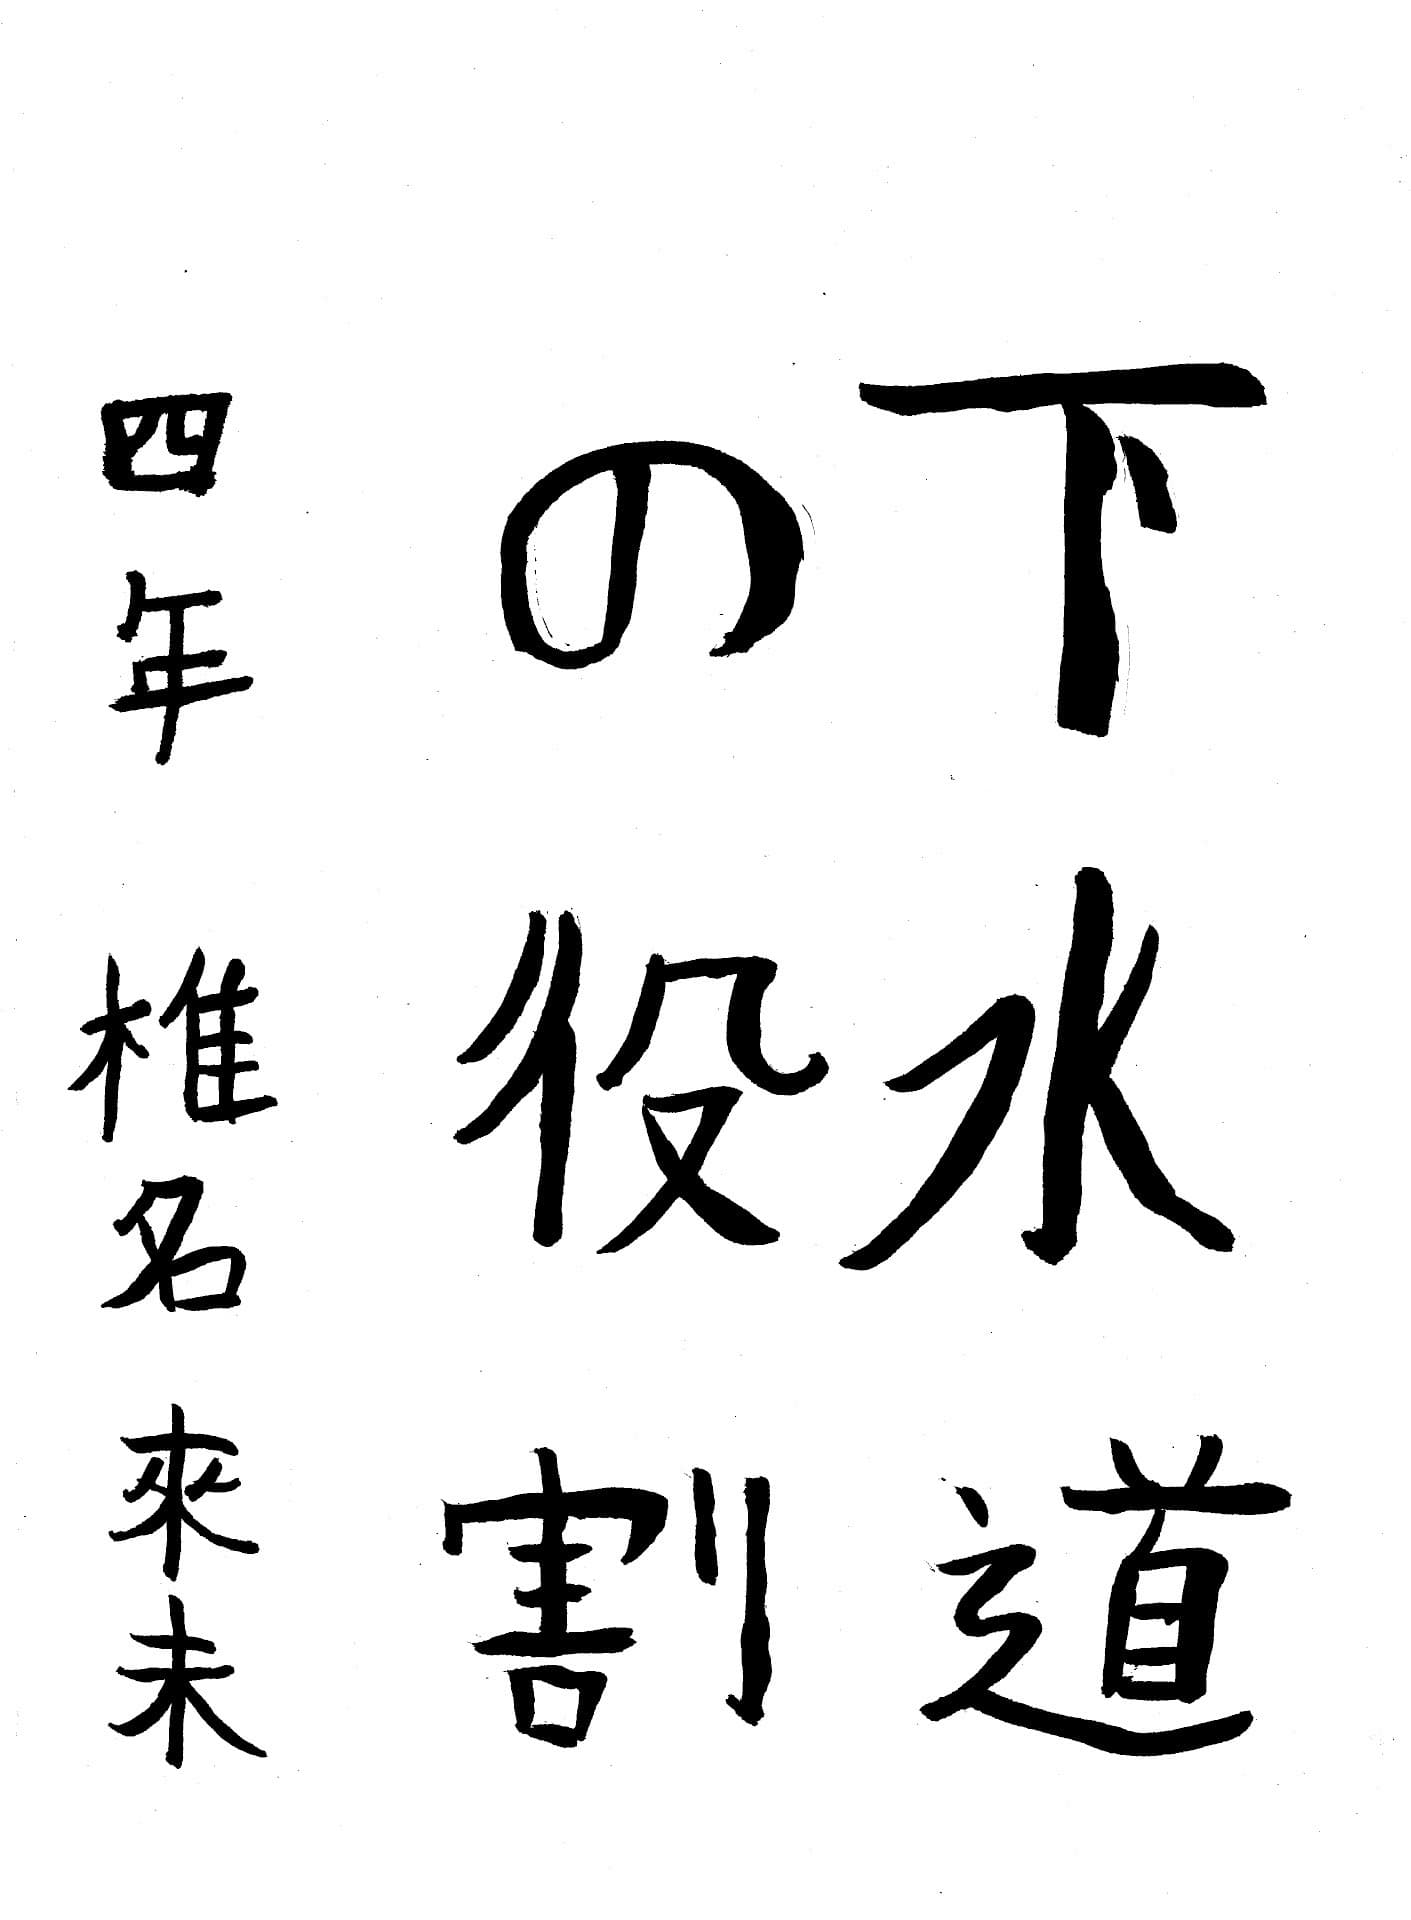 下水道
の役割
四年 椎名來未